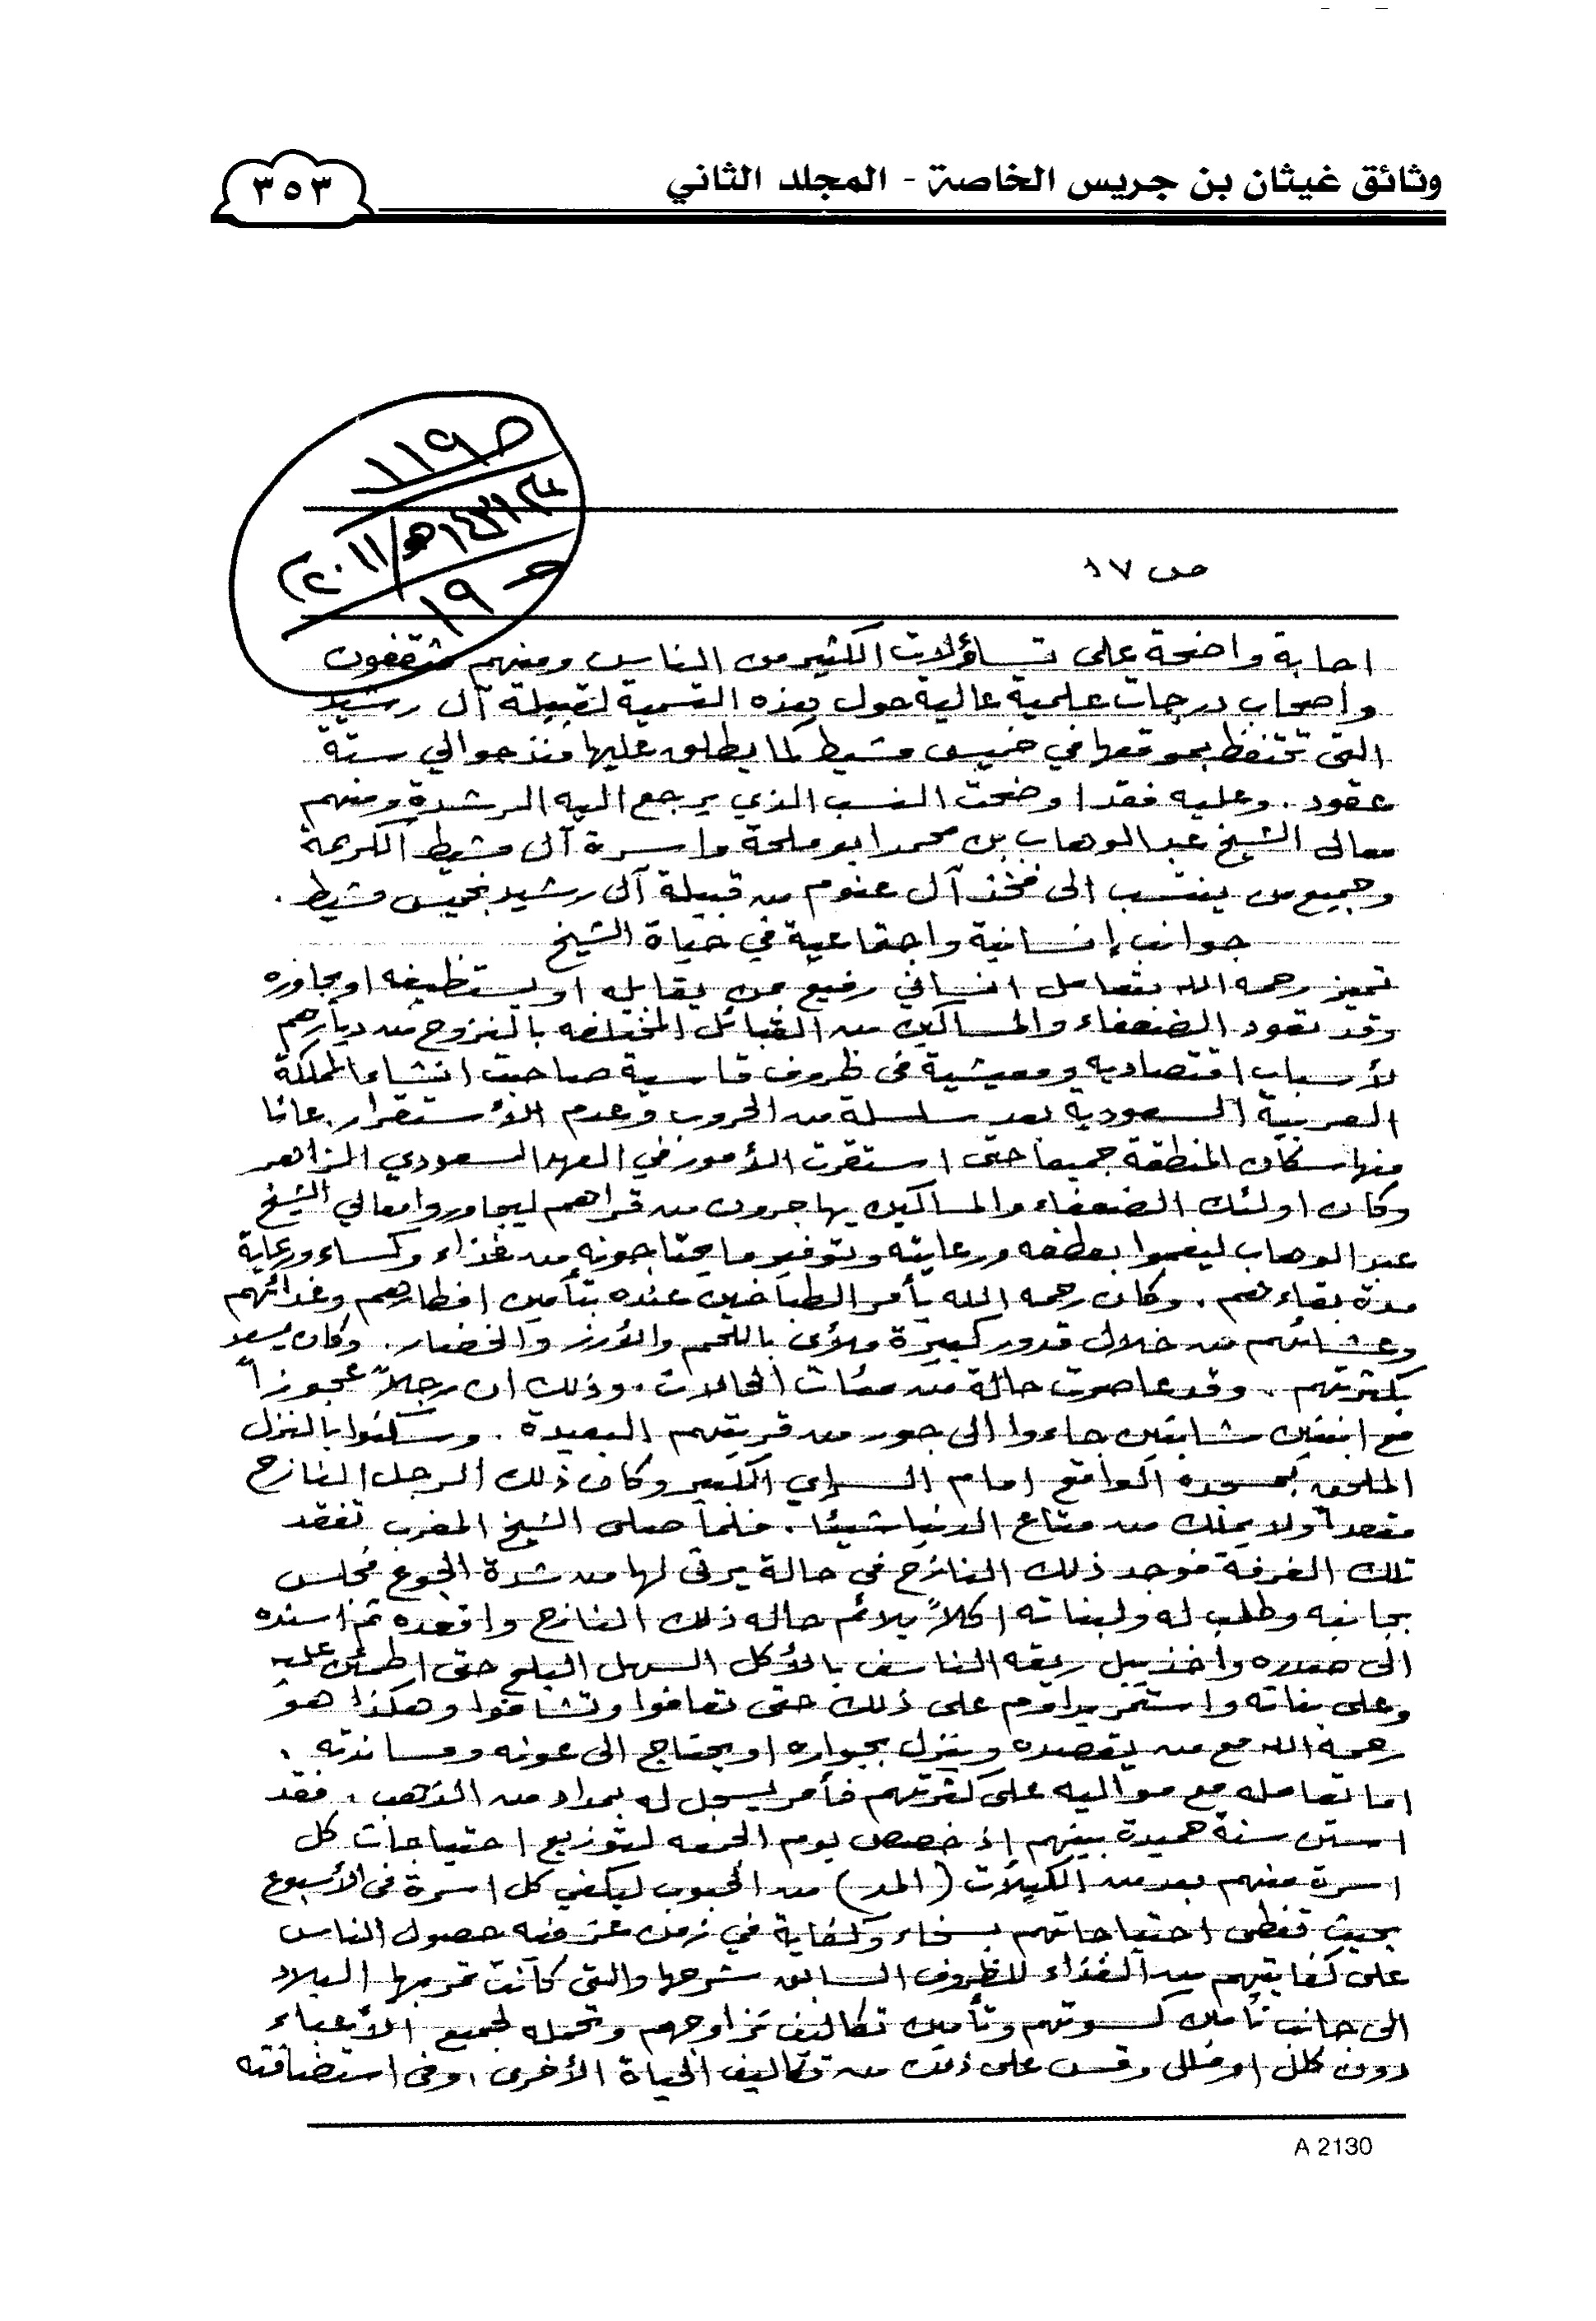 وثائق غيثان بن جريس الخاصة - المجلد الثاني
٣٥٣
ص ١١٩
١٤٣١هـ/٢٠١١م
١٩
ص ١٧
اجابة واضحة على تساؤلات الكثير من الناس ومنهم مثقفون
واصحاب درجات علمية عالية حول هذه التسمية لقبيلة آل رشيد
التى تحتفظ بموقعها في خميس مشيط كما يطلق عليها منذ حوالي ستة
عقود . وعليه فقد اوضحت النسب الذي يرجع اليه الرشدة ومنهم
معالى الشيخ عبد الوهاب بن محمد ابو ملحة واسرة آل مشيط الكريمة
وجميع من ينتسب الى فخذ آل عنوم من قبيلة آل رشيد بخميس مشيط .
جوانب إنسانية واجتماعية في حياة الشيخ
تميز رحمه الله بتعامل انساني رفيع بمن يقابله او يستظيفه او يجاوره
وقد تعود الضعفاء والمساكين من القبائل المختلفه بالنزوح من ديارهم
لأسباب اقتصاديه ومعيشية فى ظروف قاسية صاحبت انشاء المملكة
العربية السعودية بعد سلسلة من الحروب وعدم الأستقرار. عانا
منها سكان المنطقة جميعاً حتى استقرت الأمور في العهد السعودي الزاهر
وكان اولئك الضعفاء والمساكين يهاجرون من قراهم ليجاوروا معالي الشيخ
عبد الوهاب لينعموا بعطفه ورعايته وتوفير ما يحتاجونه من غذاء وكساء ورعاية
مدة بقاءهم . وكان رحمه الله يأمر الطباخين عنده بتأمين افطارهم وغدائهم
وعشائهم من خلال قدور كبيرة ملأى باللحم والأرز والخضار. وكان يسعد
بكثرتهم . وقد عاصرت حالة من مئات الحالات . وذلك ان رجلاً عجوزاً
مع ابنتين شابتين جاءوا الى جور من قريتهم البعيدة . وسكنوا بالنزل
الملحق بمسجده الواقع امام السراي الكبير وكان ذلك الرجل النازح
مقعداً ولا يملك من متاع الدنيا شيئا . فلما صلى الشيخ المغرب تفقد
تلك الغرفة فوجد ذلك النازح في حالة يرثى لها من شدة الجوع فجلس
بجانبه وطلب له ولبناته اكلاً يلائم حاله ذلك النازح واقعده ثم اسنده
الى صدره واخذ يبل ريقه الناشف بالأكل السهل البلع حتى اطمئن عليه
وعلى بناته واستمر يداوم على ذلك حتى تعافوا وتشافوا وهكذا هو
رحمه الله مع من يقصده وينزل بجواره او يحتاج الى عونه ومساندته .
اما تعامله مع مواليه على كثرتهم فأمر يسجل له بمداد من الذهب . فقد
استن سنة حميدة بينهم إذ خصص يوم الجمعه لتوزيع احتياجات كل
اسرة منهم بعدد من الكيلات ( المد ) من الحبوب ليكفي كل اسرة فى الأسبوع
بحيث تغطى احتياجاتهم بسخاء وكفاية في زمن عز فيه حصول الناس
على كفايتهم من الغذاء للظروف السابق شرحها والتى كانت تمر بها البلاد
الى جانب تأمين كسوتهم وتأمين تكاليف تزاوجهم وتحمله لجميع الأعباء
دون كلل او ملل وقس على ذلك من تكاليف الحياة الأخرى . وفى استضافته
A 2130